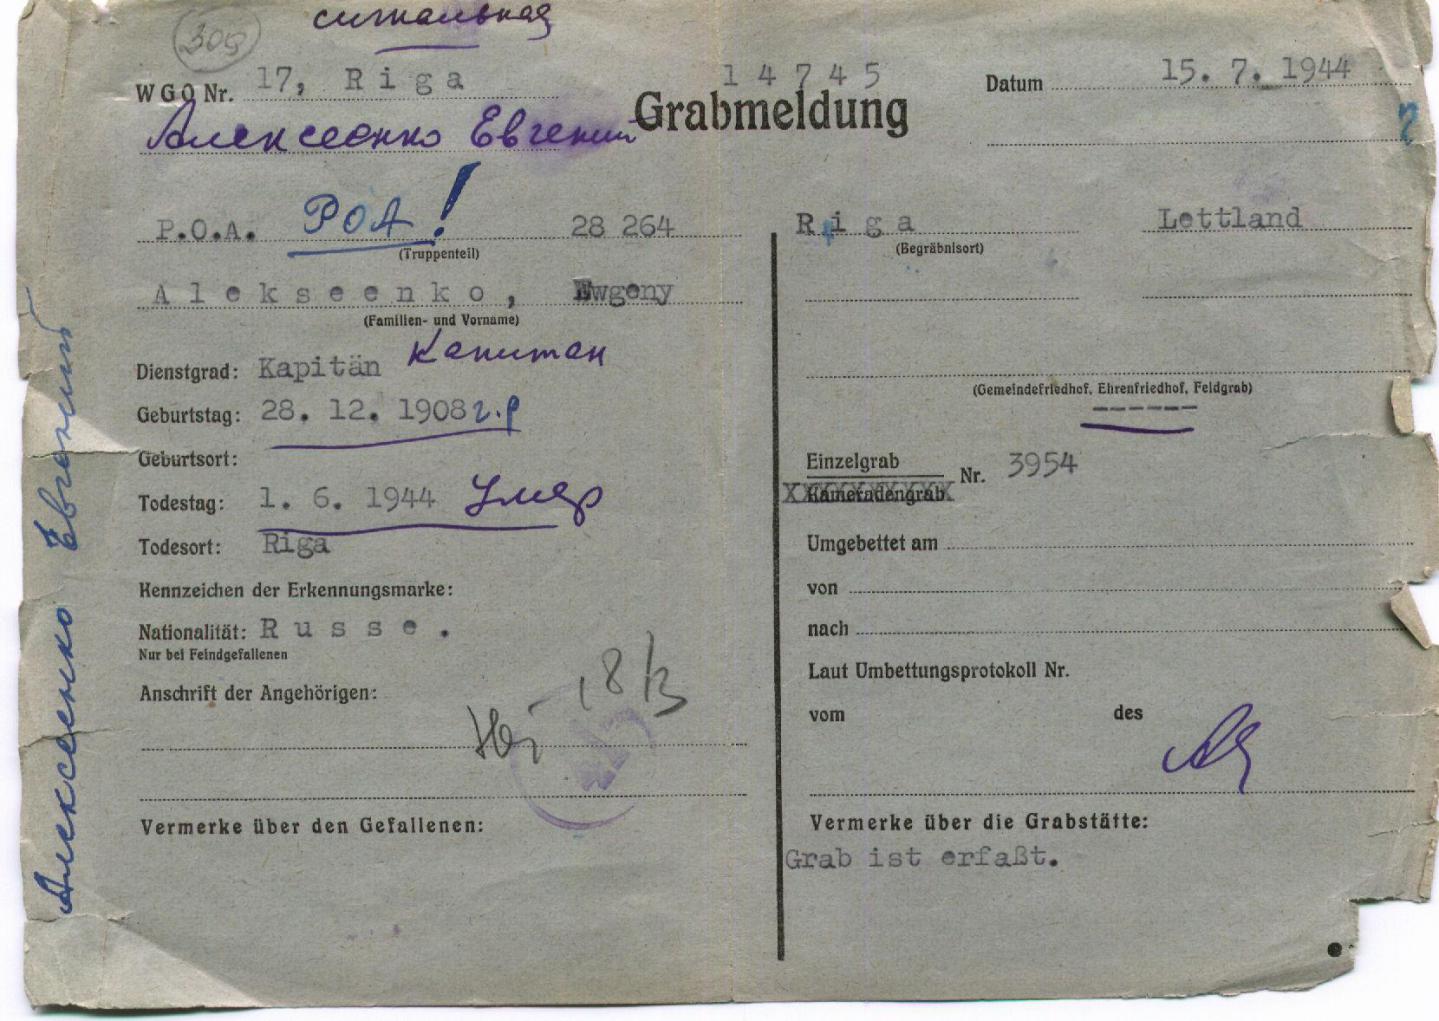 сигнальная
309
WGO Nr. 17, Riga
14745
Grabmeldung
Datum 15. 7. 1944
Алексеенко Евгений
?
P.O.A. РОА! 28 264
(Truppenteil)
Alekseenko, Ewgeny
(Familien- und Vorname)
Dienstgrad: Kapitän Капитан
Geburtstag: 28. 12. 1908 г.р
Geburtsort:
Todestag: 1. 6. 1944 Умер
Todesort: Riga
Kennzeichen der Erkennungsmarke:
Nationalität: Russe.
Nur bei Feindgefallenen
Anschrift der Angehörigen:
Vermerke über den Gefallenen:
Riga Lettland
(Begräbnisort)
(Gemeindefriedhof, Ehrenfriedhof, Feldgrab)
Einzelgrab
Kameradengrab
Nr. 3954
Umgebettet am
von
nach
Laut Umbettungsprotokoll Nr.
vom des
Vermerke über die Grabstätte:
Grab ist erfaßt.
Алексеенко Евгений